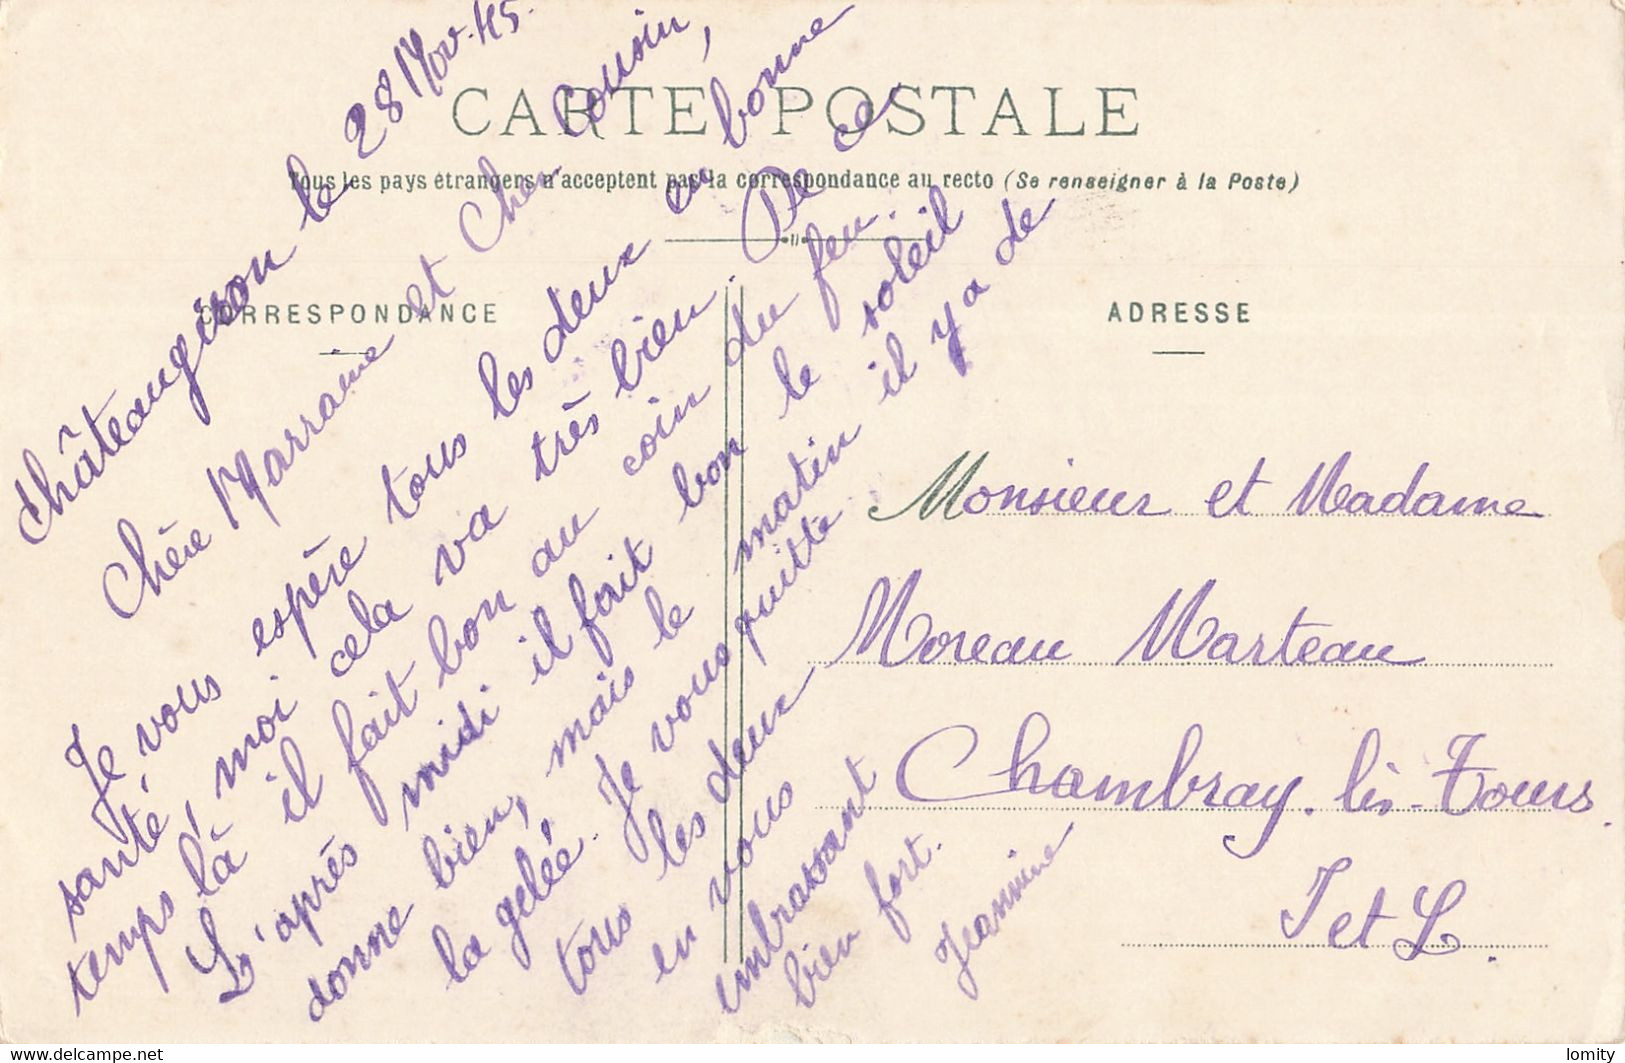 CARTE POSTALE
Tous les pays étrangers n'acceptent pas la correspondance au recto (Se renseigner à la Poste)
CORRESPONDANCE
ADRESSE
Châteaugiron le 28 Nov. 45.
Chère Marraine et Cher Cousin,
Je vous espère tous les deux en bonne
santé, moi cela va très bien. De ce
temps là il fait bon au coin du feu.
L'après midi il fait bon le soleil
donne bien, mais le matin il y a de
la gelée. Je vous quitte
tous les deux
en vous
embrassant
bien fort.
Jeannine
Monsieur et Madame
Moreau Marteau
Chambray-lès-Tours.
I et L.
lomity